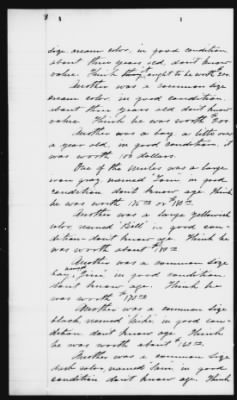 size cream color, in good condition
about three years old, don't know
value. Think they ought to be worth 200.
Another was a common size
cream color in good condition
about three years old don't know
value. Think he was worth $200
Another was a bay a little over
a year old, in good condition. it
was worth 100 dollars.
One of the mules was a large
iron gray, named Tom in good
condition don't know age. Think
he was worth 175 or 180
Another was a large yellowish
color, named Bell in good con-
dition don't know age. Think he
was worth about
Another was a common size
bay, named in good condition
don't know age. Think he
was worth
Another was a common size
black, named in good con-
dition don't know age. Think
he was worth about
Another was a common size
color, named Sam, in good
condition don't know age. Think